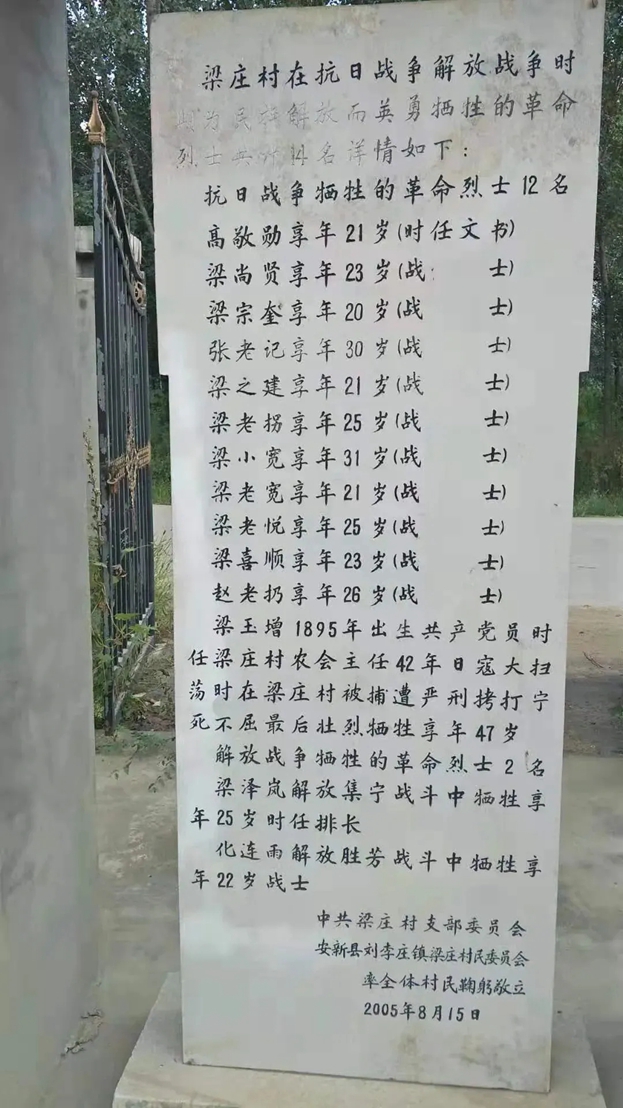 梁庄村在抗日战争解放战争时
期为民族解放而英勇牺牲的革命
烈士共计14名详情如下：
抗日战争牺牲的革命烈士12名
高敬勋享年21岁(时任文书)
梁尚贤享年23岁(战 士)
梁宗奎享年20岁(战 士)
张老记享年30岁(战 士)
梁之建享年21岁(战 士)
梁老拐享年25岁(战 士)
梁小宽享年31岁(战 士)
梁老宽享年21岁(战 士)
梁老悦享年25岁(战 士)
梁喜顺享年23岁(战 士)
赵老扔享年26岁(战 士)
梁玉增1895年出生共产党员时
任梁庄村农会主任42年日寇大扫
荡时在梁庄村被捕遭严刑拷打宁
死不屈最后壮烈牺牲享年47岁
解放战争牺牲的革命烈士2名
梁泽岚解放集宁战斗中牺牲享
年25岁时任排长
化连雨解放胜芳战斗中牺牲享
年22岁战士
中共梁庄村支部委员会
安新县刘李庄镇梁庄村民委员会
率全体村民鞠躬敬立
2005年8月15日